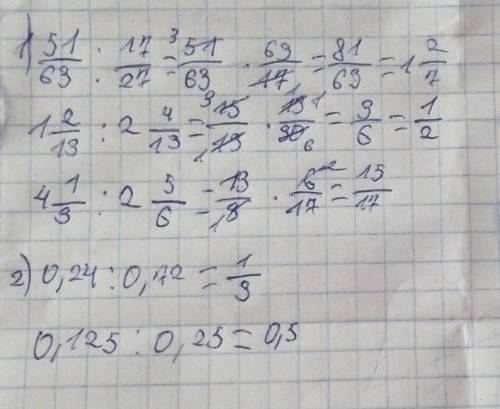 1) 51/63 : 17/27 = ³51/63 · 63/17 = 81/63 = 1 2/7
1 2/13 : 2 4/13 = ³15/₁13 · ¹13¹/30₆ = 3/6 = 1/2
4 1/3 : 2 5/6 = 13/₁8 · 6²/17 = 15/17
2) 0,24 : 0,72 = 1/3
0,125 : 0,25 = 0,5